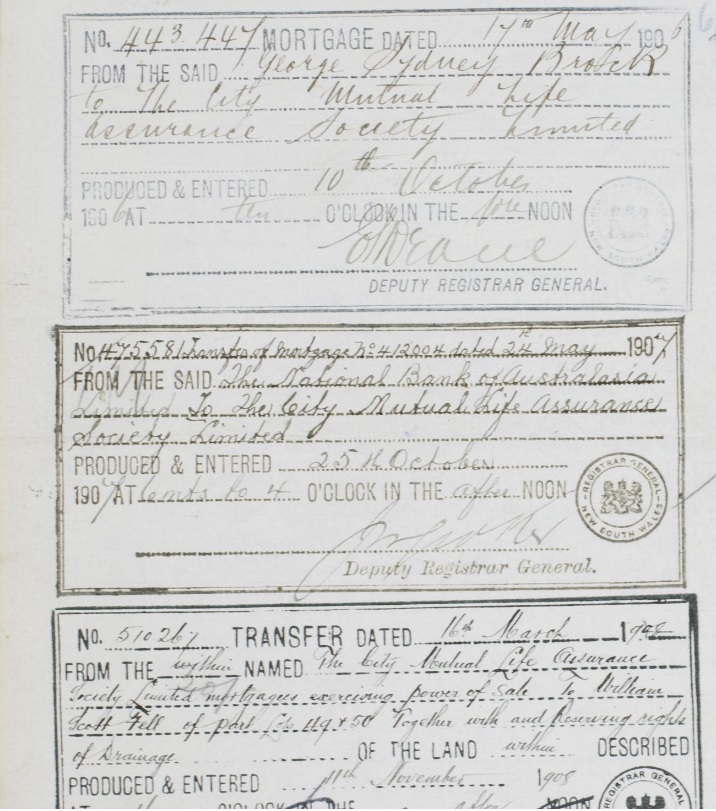 No. 443.447 MORTGAGE DATED 17th May 1906
FROM THE SAID George Sydney Brock
to The City Mutual Life
Assurance Society Limited
PRODUCED & ENTERED 10th October
1906 AT ten O'CLOCK IN THE fore NOON
DEPUTY REGISTRAR GENERAL.
No. 475581 Transfer of Mortgage No 412004 dated 24th May 1907
FROM THE SAID The National Bank of Australasia
Limited To The City Mutual Life Assurance
Society Limited
PRODUCED & ENTERED 25th October
1907 AT to 4 O'CLOCK IN THE after NOON
REGISTRAR GENERAL NEW SOUTH WALES
Deputy Registrar General.
No. 510267 TRANSFER DATED 16th March 1908
FROM THE within NAMED The City Mutual Life Assurance
Society Limited mortgagees exercising power of Sale To William
Scott Fell of part Lots 49 & 50 Together with and Reserving rights
of Drainage OF THE LAND within DESCRIBED
PRODUCED & ENTERED 11th November 1908
AT O'CLOCK IN THE NOON
REGISTRAR GENERAL